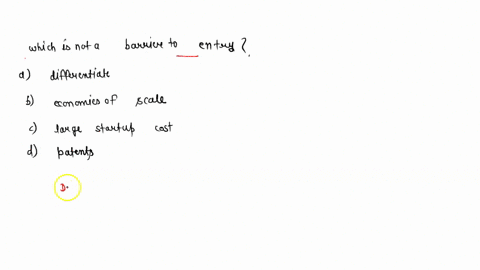 which is not a barrier to entry?
a) differentiate
b) economies of scale
c) large startup cost
d) patents
D.